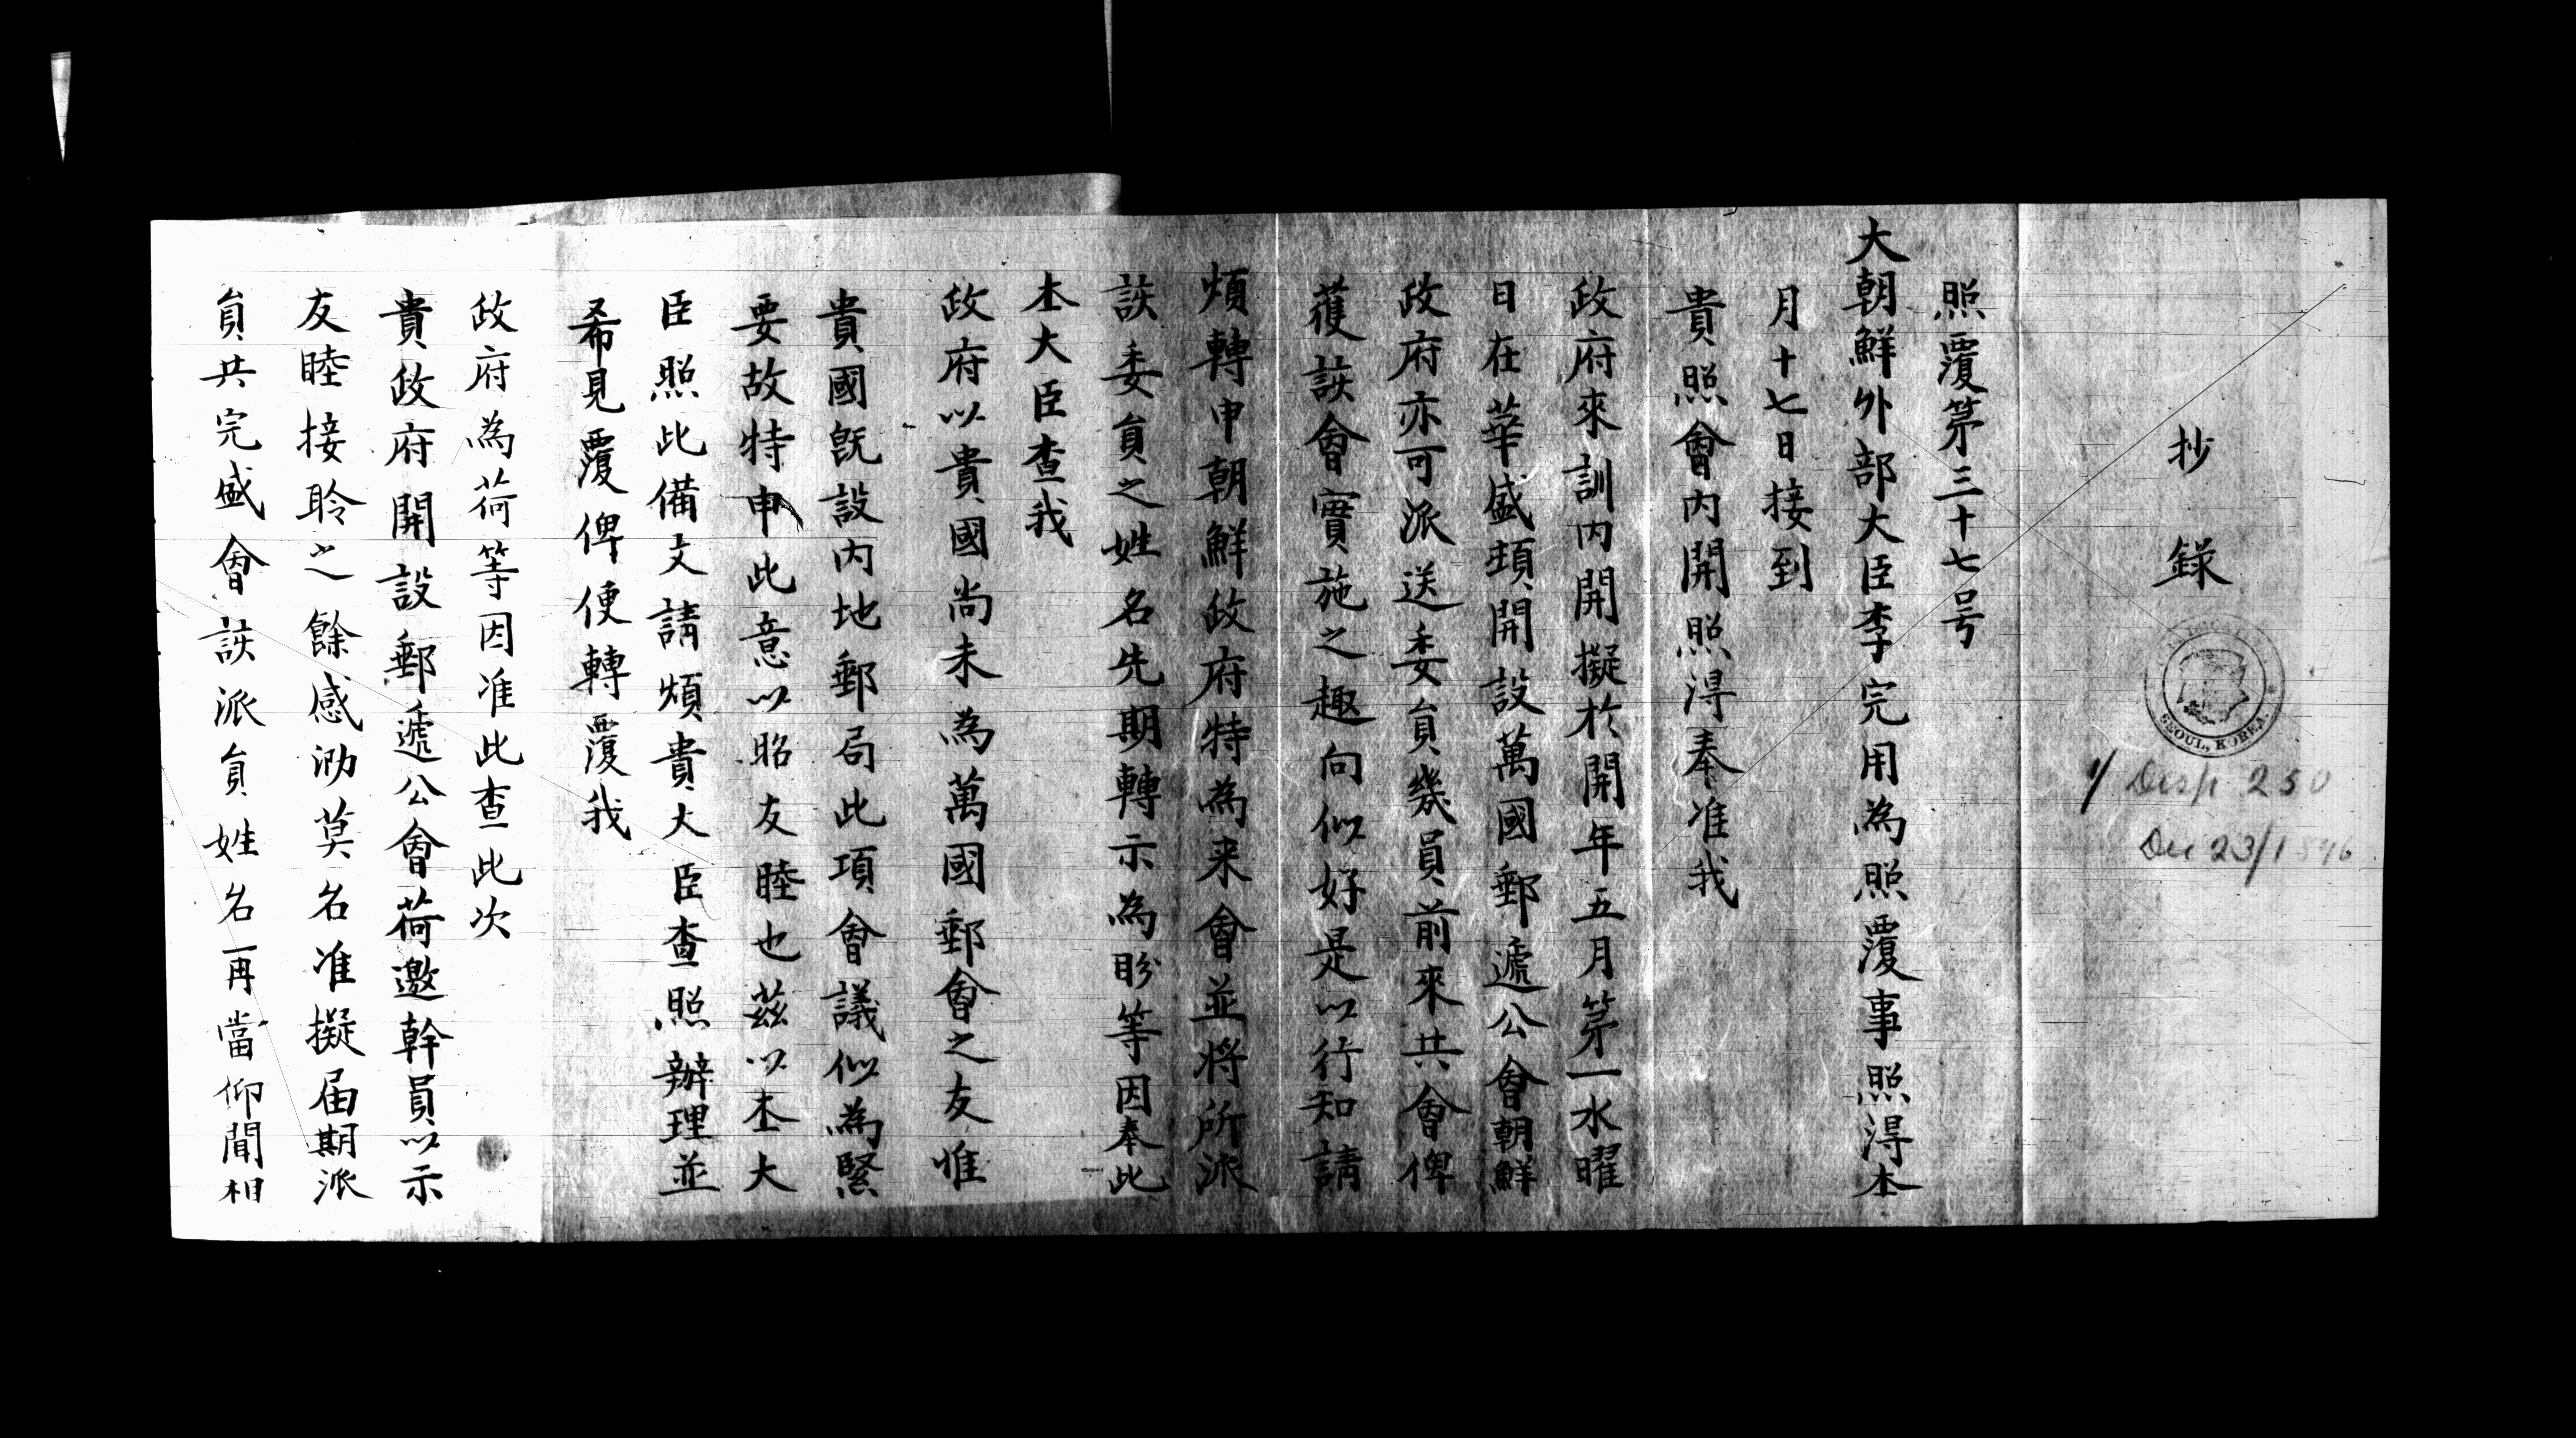 抄錄
SEOUL, KOREA.
1/ Disp 250
Dec 23/1896
照覆第三十七号
大朝鮮外部大臣李完用為照覆事照淂本
月十七日接到
貴照會內開照淂奉准我
政府來訓內開擬於開年五月第一水曜
日在華盛頓開設萬國郵遞公會朝鮮
政府亦可派送委員幾員前來共會俾
蒦該會實施之趣向似好是以行知請
煩轉申朝鮮政府特為来會並將所派
該委員之姓名先期轉示為盼等因奉此
本大臣查我
政府以貴國尚未為萬國郵會之友惟
貴國旣設內地郵局此項會議似為緊
要故特申此意以昭友睦也茲以本大
臣照此備文請煩貴大臣查照辦理並
希見覆俾便轉覆我
政府為荷等因准此查此次
貴政府開設郵遞公會荷邀幹員以示
友睦接聆之餘感泐莫名准擬届期派
員共完盛會該派員姓名再當仰聞相